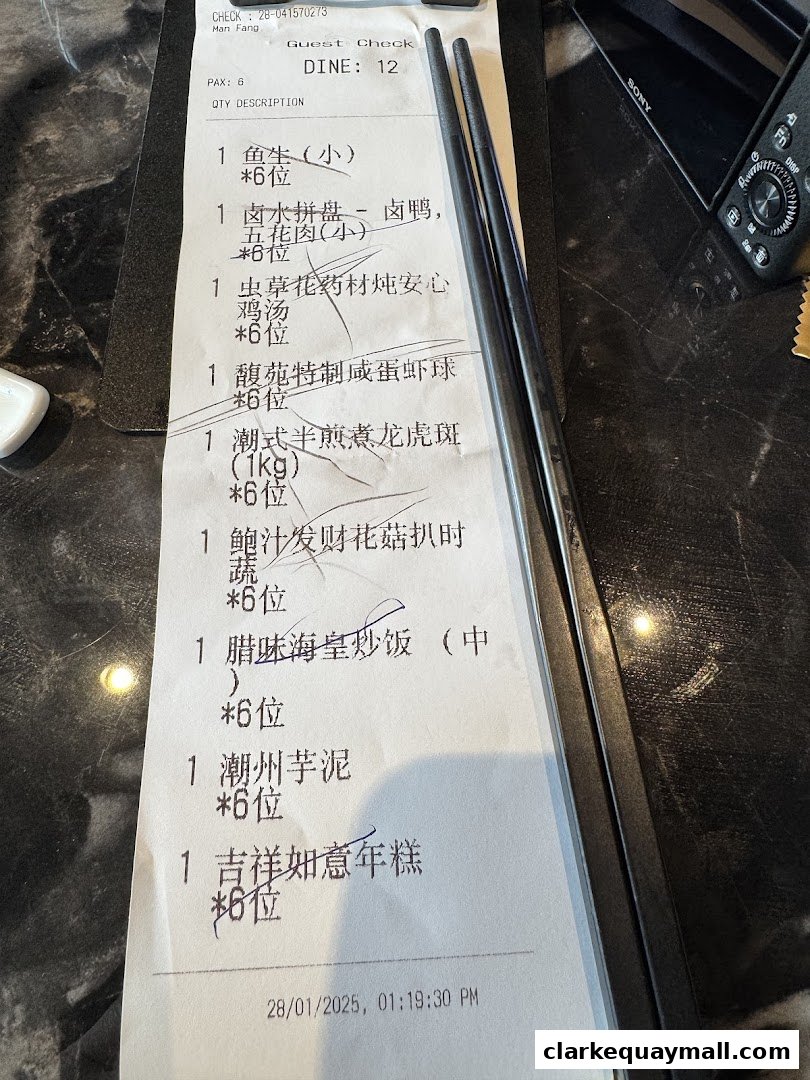 CHECK : 28-041570273
Man Fang
Guest Check
DINE: 12
PAX: 6
QTY DESCRIPTION
1 鱼生(小)
*6位
1 卤水拼盘 - 卤鸭,
五花肉(小)
*6位
1 虫草花药材炖安心
鸡汤
*6位
1 馥苑特制咸蛋虾球
*6位
1 潮式半煎煮龙虎斑
(1kg)
*6位
1 鲍汁发财花菇扒时
蔬
*6位
1 腊味海皇炒饭 (中
)
*6位
1 潮州芋泥
*6位
1 吉祥如意年糕
*6位
28/01/2025, 01:19:30 PM
SONY
Fn
DISP
clarkequaymall.com